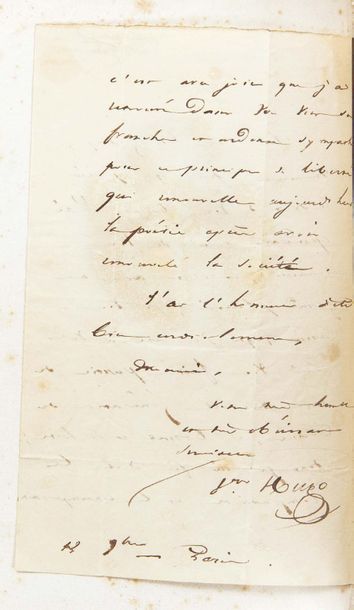 c'est avec joie que j'ai
trouvé dans vos vers une
franche et ardente sympath
pour ce principe de liberté
qui renouvelle aujourd'hui
la poésie après avoir
renouvelé la société.
J'ai l'honneur d'être
bien cordialement,
Monsieur,
Votre très humble
et très obéissant
serviteur
Vor Hugo
18 9bre — Paris.